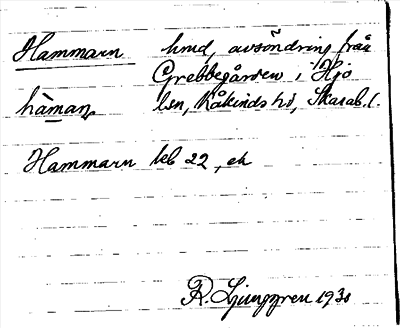 Hammarn hmd, avsöndring från
Grebbegården i Hjo
hàman, lsn, Kåkinds hd, Skarab. l.
Hammarn leb 22, ek
R. Ljunggren 1930